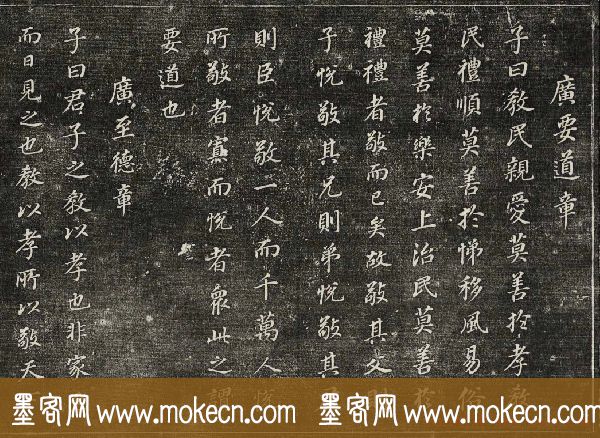 廣要道章
子曰教民親愛莫善於孝教
民禮順莫善於悌移風易俗
莫善於樂安上治民莫善於
禮禮者敬而已矣故敬其父則
子悅敬其兄則弟悅敬其
則臣悅敬一人而千萬人悅
所敬者寡而悅者衆此之謂
要道也
廣至德章
子曰君子之教以孝也非家
而日見之也教以孝所以敬天
墨客网 www.mokecn.com 墨客网 www.mokecn.com